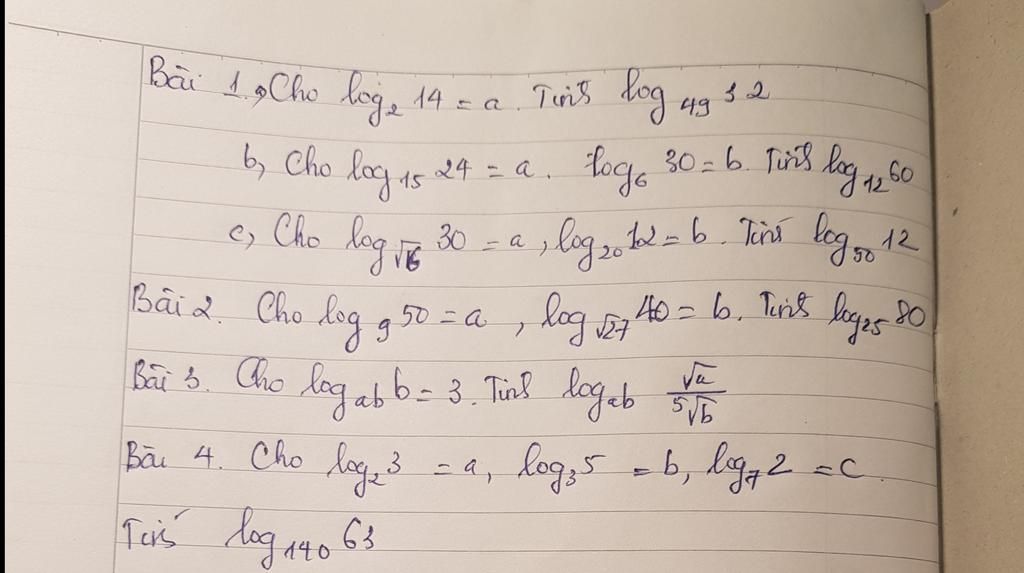 Bài 1. a, Cho log₂ 14 = a. Tính log₄₉ 32
b, Cho log₁₅ 24 = a. log₆ 30 = b. Tính log₁₂ 60
c, Cho log_√6 30 = a, log₂₀ 12 = b. Tính log₅₀ 12
Bài 2. Cho log₉ 50 = a, log_√27 40 = b. Tính log₂₅ 80
Bài 3. Cho log_ab b = 3. Tính log_ab √a / ⁵√b
Bài 4. Cho log₂ 3 = a, log₃ 5 = b, log₇ 2 = c.
Tính log₁₄₀ 63